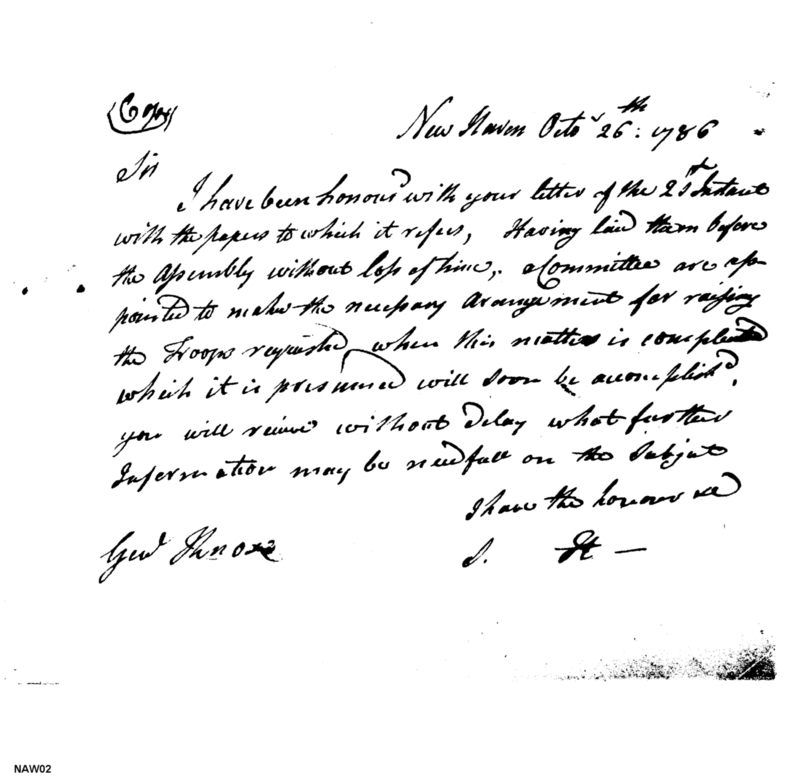 (Copy)
New Haven Octor 26th: 1786
Sir
I have been honour'd with your letter of the 21st Instant
with the papers to which it refers, Having laid them before
the Assembly without loss of time, a Committee are ap-
pointed to make the necessary Arangement for raising
the Troops requested, when this matter is compleated
which it is presumed will soon be accomplish'd,
you will receive without delay what further
Information may be needfull on the Subject
I have the honour &c
Genl Knox
S. H —
NAW02